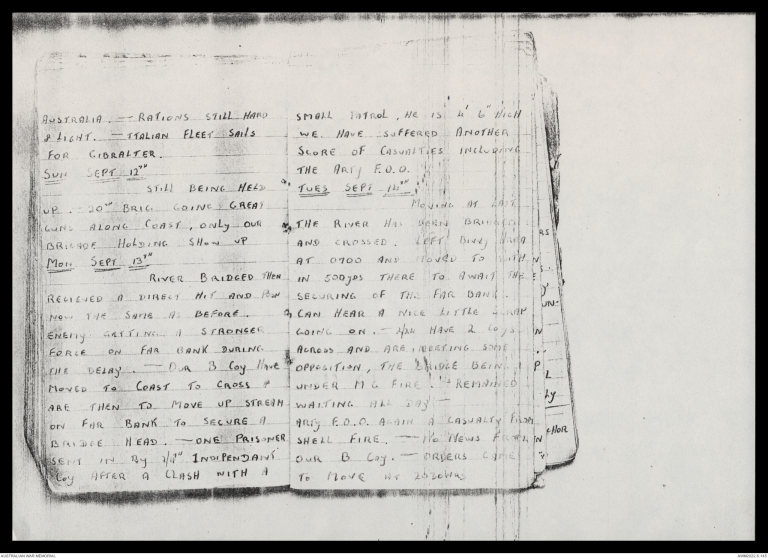 AUSTRALIA. — RATIONS STILL HARD
& LIGHT. — ITALIAN FLEET SAILS
FOR GIBRALTER.
SUN SEPT 12TH
STILL BEING HELD
UP. 20TH BRIG GOING GREAT
GUNS ALONG COAST, ONLY OUR
BRIGADE HOLDING SHOW UP
MON SEPT 13TH
RIVER BRIDGED THEN
RECIEVED A DIRECT HIT AND
NOW THE SAME AS BEFORE.
ENEMY GETTING A STRONGER
FORCE ON FAR BANK DURING
THE DELAY. — OUR B COY HAVE
MOVED TO COAST TO CROSS &
ARE THEN TO MOVE UP STREAM
ON FAR BANK TO SECURE A
BRIDGE HEAD. — ONE PRISONER
SENT IN BY INDIPENDANT
COY AFTER A CLASH WITH A
SMALL PATROL, HE IS 4' 6" HIGH
WE HAVE SUFFERED ANOTHER
SCORE OF CASUALTIES INCLUDING
THE ARTY F.O.O.
TUES SEPT 14TH
MOVING AT LAST
THE RIVER HAS BEEN BRIDGED
AND CROSSED. LEFT BIVVY AREA
AT 0900 AND MOVED TO WITH
IN 500YDS THERE TO AWAIT THE
SECURING OF THE FAR BANK.
CAN HEAR A NICE LITTLE SCRAP
GOING ON. — 2/24 HAVE 2 COYS
ACROSS AND ARE MEETING SOME
OPPOSITION, THE BRIDGE BEING
UNDER M G FIRE. — REMAINED
WAITING ALL DAY —
ARTY F.O.O. AGAIN A CASUALTY FROM
SHELL FIRE. — NO NEWS FROM
OUR B COY. — ORDERS CAME
TO MOVE AT HRS
AUSTRALIAN WAR MEMORIAL